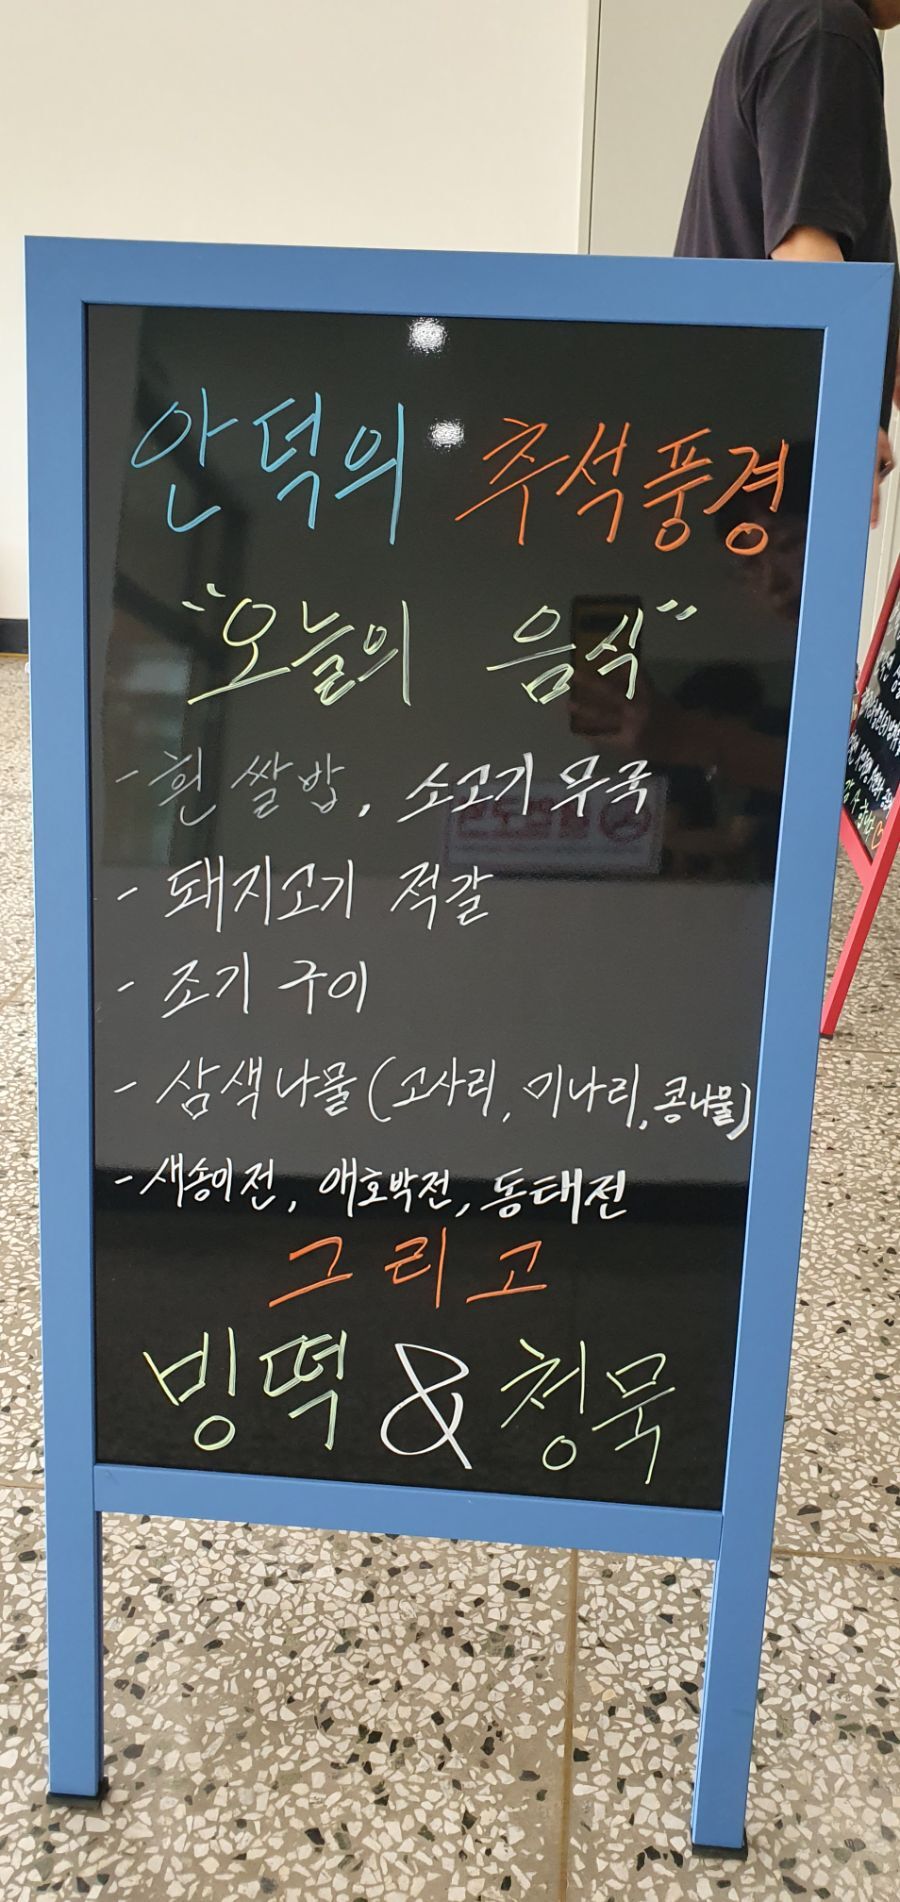 안덕의 추석풍경
"오늘의 음식"
- 흰 쌀밥, 소고기 무국
- 돼지고기 적갈
- 조기 구이
- 삼색나물(고사리, 미나리, 콩나물)
- 새송이전, 애호박전, 동태전
그리고
빙떡 & 청묵